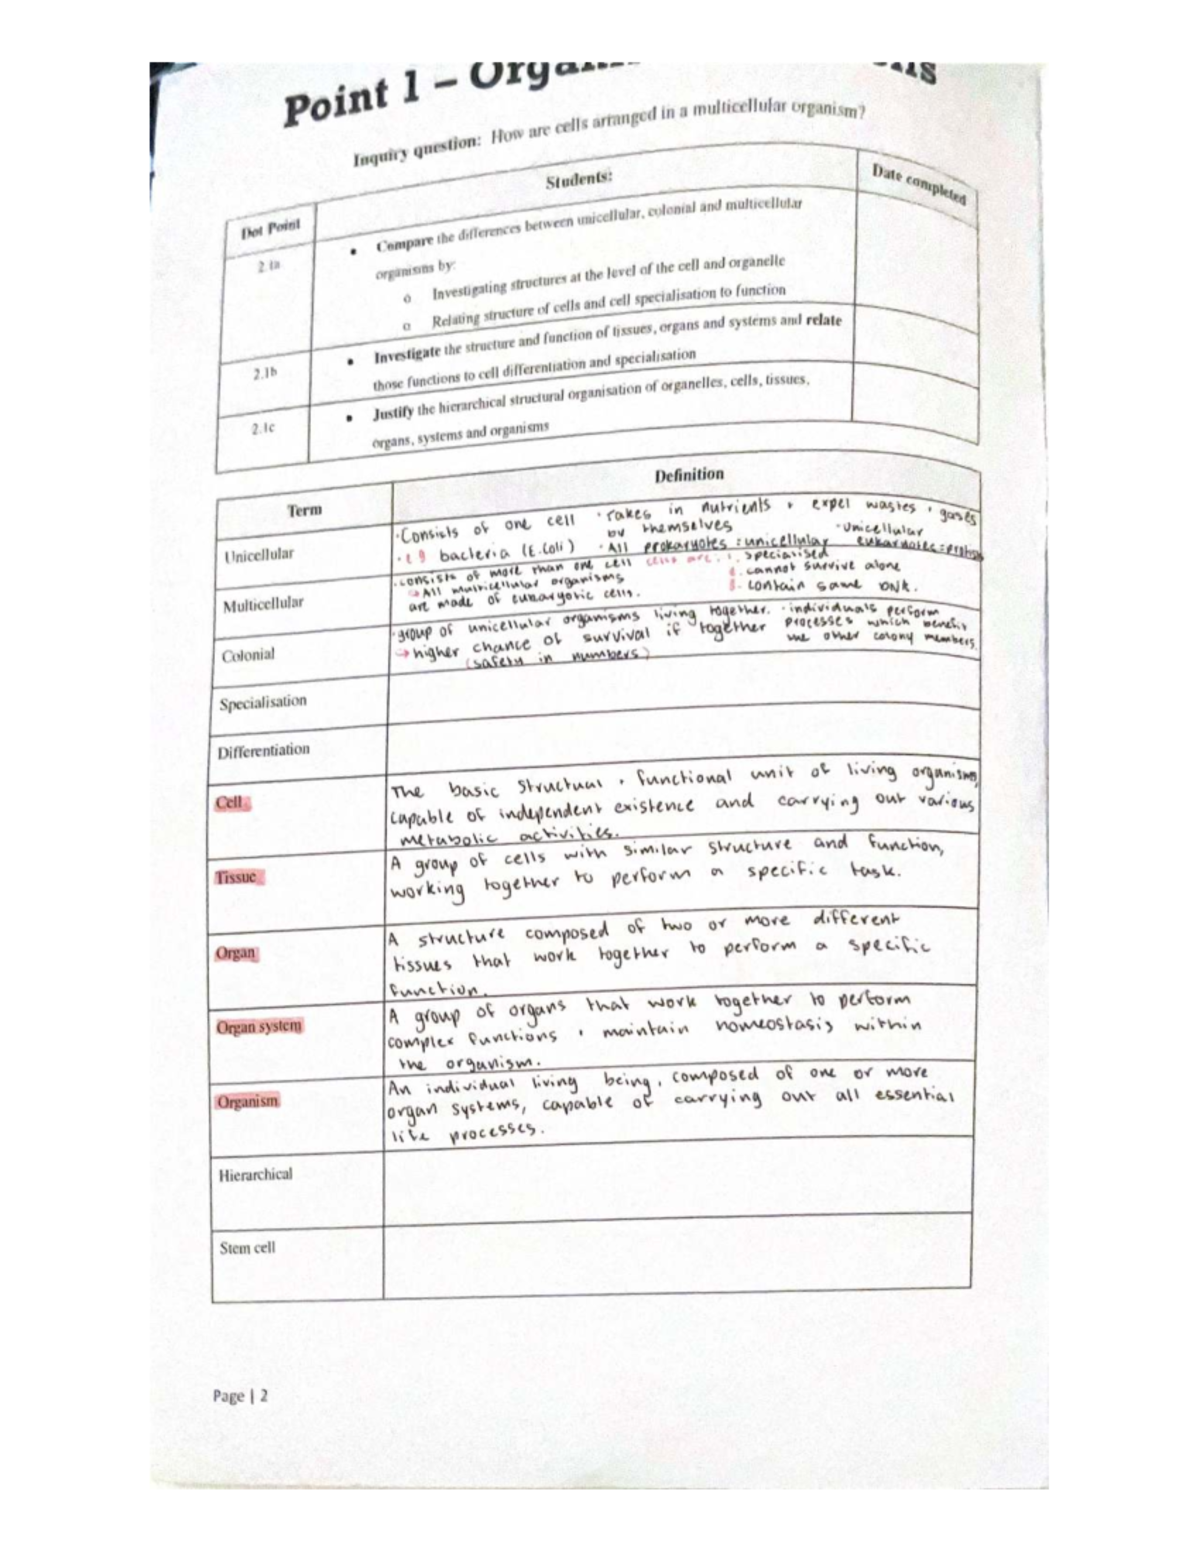 Point 1 –
Inquiry question: How are cells arranged in a multicellular organism?
Dot Point
Students:
Date completed
2.1a
• Compare the differences between unicellular, colonial and multicellular
organisms by:
o Investigating structures at the level of the cell and organelle
o Relating structure of cells and cell specialisation to function
2.1b
• Investigate the structure and function of tissues, organs and systems and relate
those functions to cell differentiation and specialisation
2.1c
• Justify the hierarchical structural organisation of organelles, cells, tissues,
organs, systems and organisms
Term
Definition
Unicellular
·Consists of one cell
·e.g bacteria (E.Coli)
·Takes in nutrients + expel wastes + gases
by themselves
·All prokaryotes = unicellular
·Unicellular
eukaryotes =
Multicellular
·consists of more than one cell
→All multicellular organisms
are made of eukaryotic cells.
cells are: 1. specialised
2. cannot survive alone
3. contain same DNA.
Colonial
·group of unicellular organisms living together.
→higher chance of survival if together
(safety in numbers)
·individuals perform
processes which benefit
the other colony members.
Specialisation
Differentiation
Cell
The basic structual + functional unit of living organisms,
capable of independent existence and carrying out various
metabolic activities.
Tissue
A group of cells with similar structure and function,
working together to perform a specific task.
Organ
A structure composed of two or more different
tissues that work together to perform a specific
function.
Organ system
A group of organs that work together to perform
complex functions + maintain homeostasis within
the organism.
Organism
An individual living being, composed of one or more
organ systems, capable of carrying out all essential
life processes.
Hierarchical
Stem cell
Page | 2